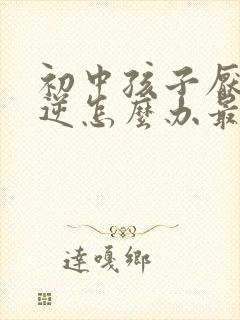 初中孩子厭
逆怎麼办最
達嘎鄉